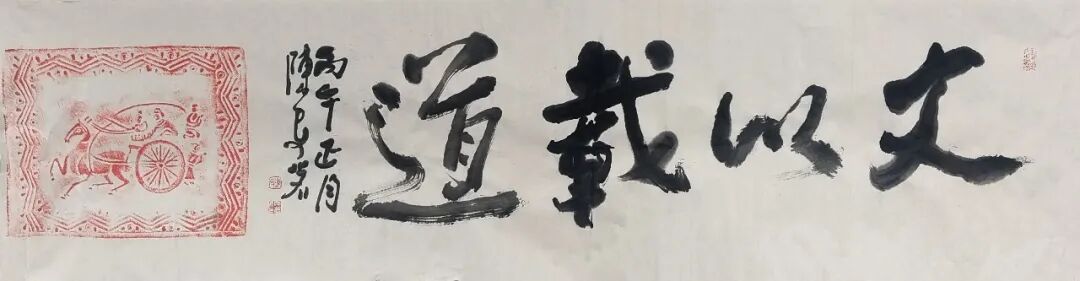 文以載道
丙午正月
陳